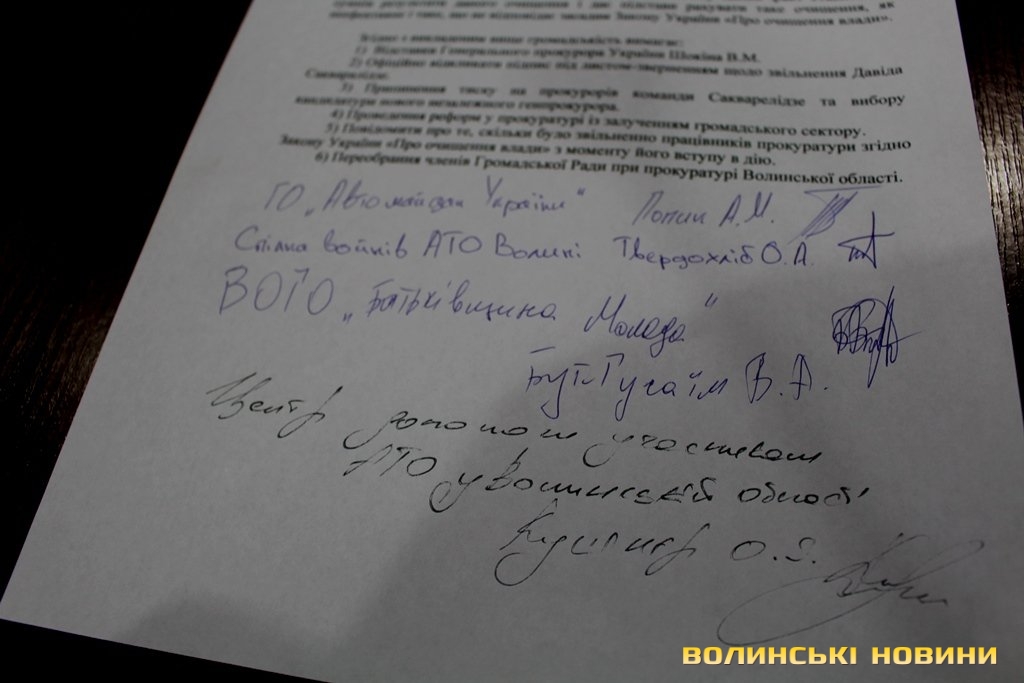 Закону України «Про очищення влади».
Згідно з викладеним вище громадськість вимагає:
1) Відставки Генерального прокурора України Шокіна В.М.
2) Офіційно відкликати підпис під листом-зверненням щодо звільнення Давіда
Сакварелідзе.
3) Припинення тиску на прокурорів команди Сакварелідзе та вибору
кандидатури нового незалежного генпрокурора.
4) Проведення реформ у прокуратурі із залученням громадського сектору.
5) Повідомити про те, скільки було звільненно працівників прокуратури згідно
Закону України «Про очищення влади» з моменту його вступу в дію.
6) Переобрання членів Громадської Ради при прокуратурі Волинської області.
ГО „Автомайдан України" А.М.
Спілка воїнів АТО Волині Твердохліб О.А.
ВОГО „Батьківщина Молода"
В.А.
Центр допомоги учасникам
АТО у Волинській області
Кушнір О.Я.
ВОЛИНСЬКІ НОВИНИ